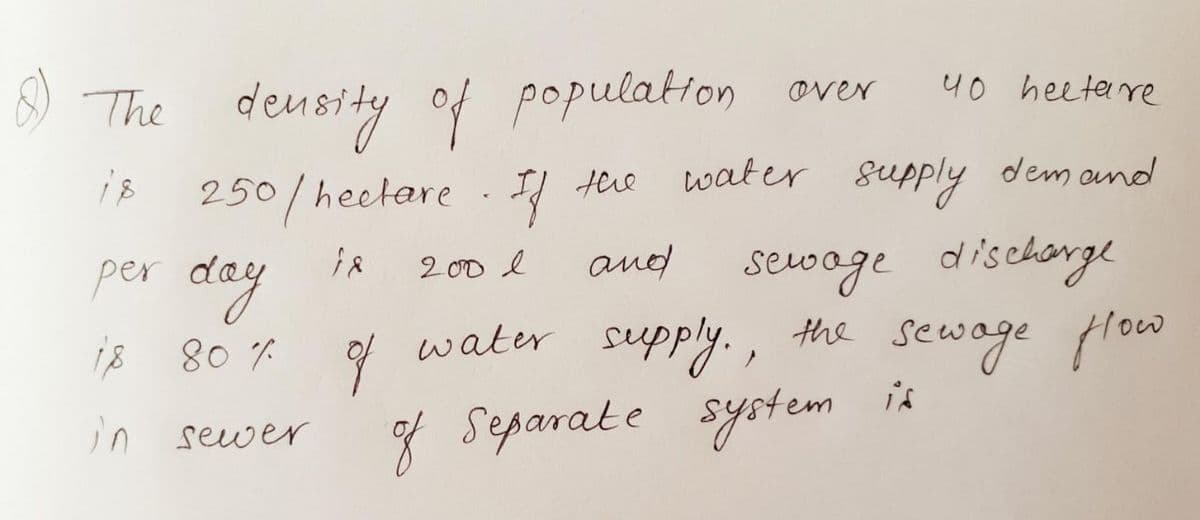 8) The density of population over 40 hectare
is 250/hectare. If the water supply demand
per day is 200 l and sewage discharge
is 80% of water supply., the sewage flow
in sewer of Separate system is